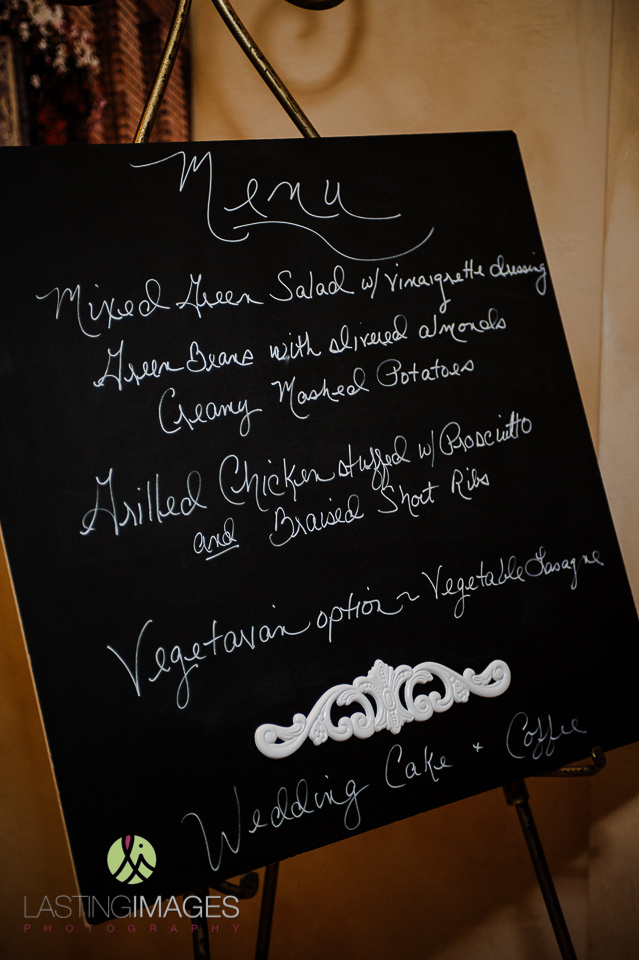 Menu
Mixed Green Salad w/ vinaigrette dressing
Green Beans with slivered almonds
Creamy Mashed Potatoes
Grilled Chicken stuffed w/ Prosciutto
and Braised Short Ribs
Vegetarian option ~ Vegetable Lasagne
Wedding Cake + Coffee
LASTINGIMAGES
PHOTOGRAPHY